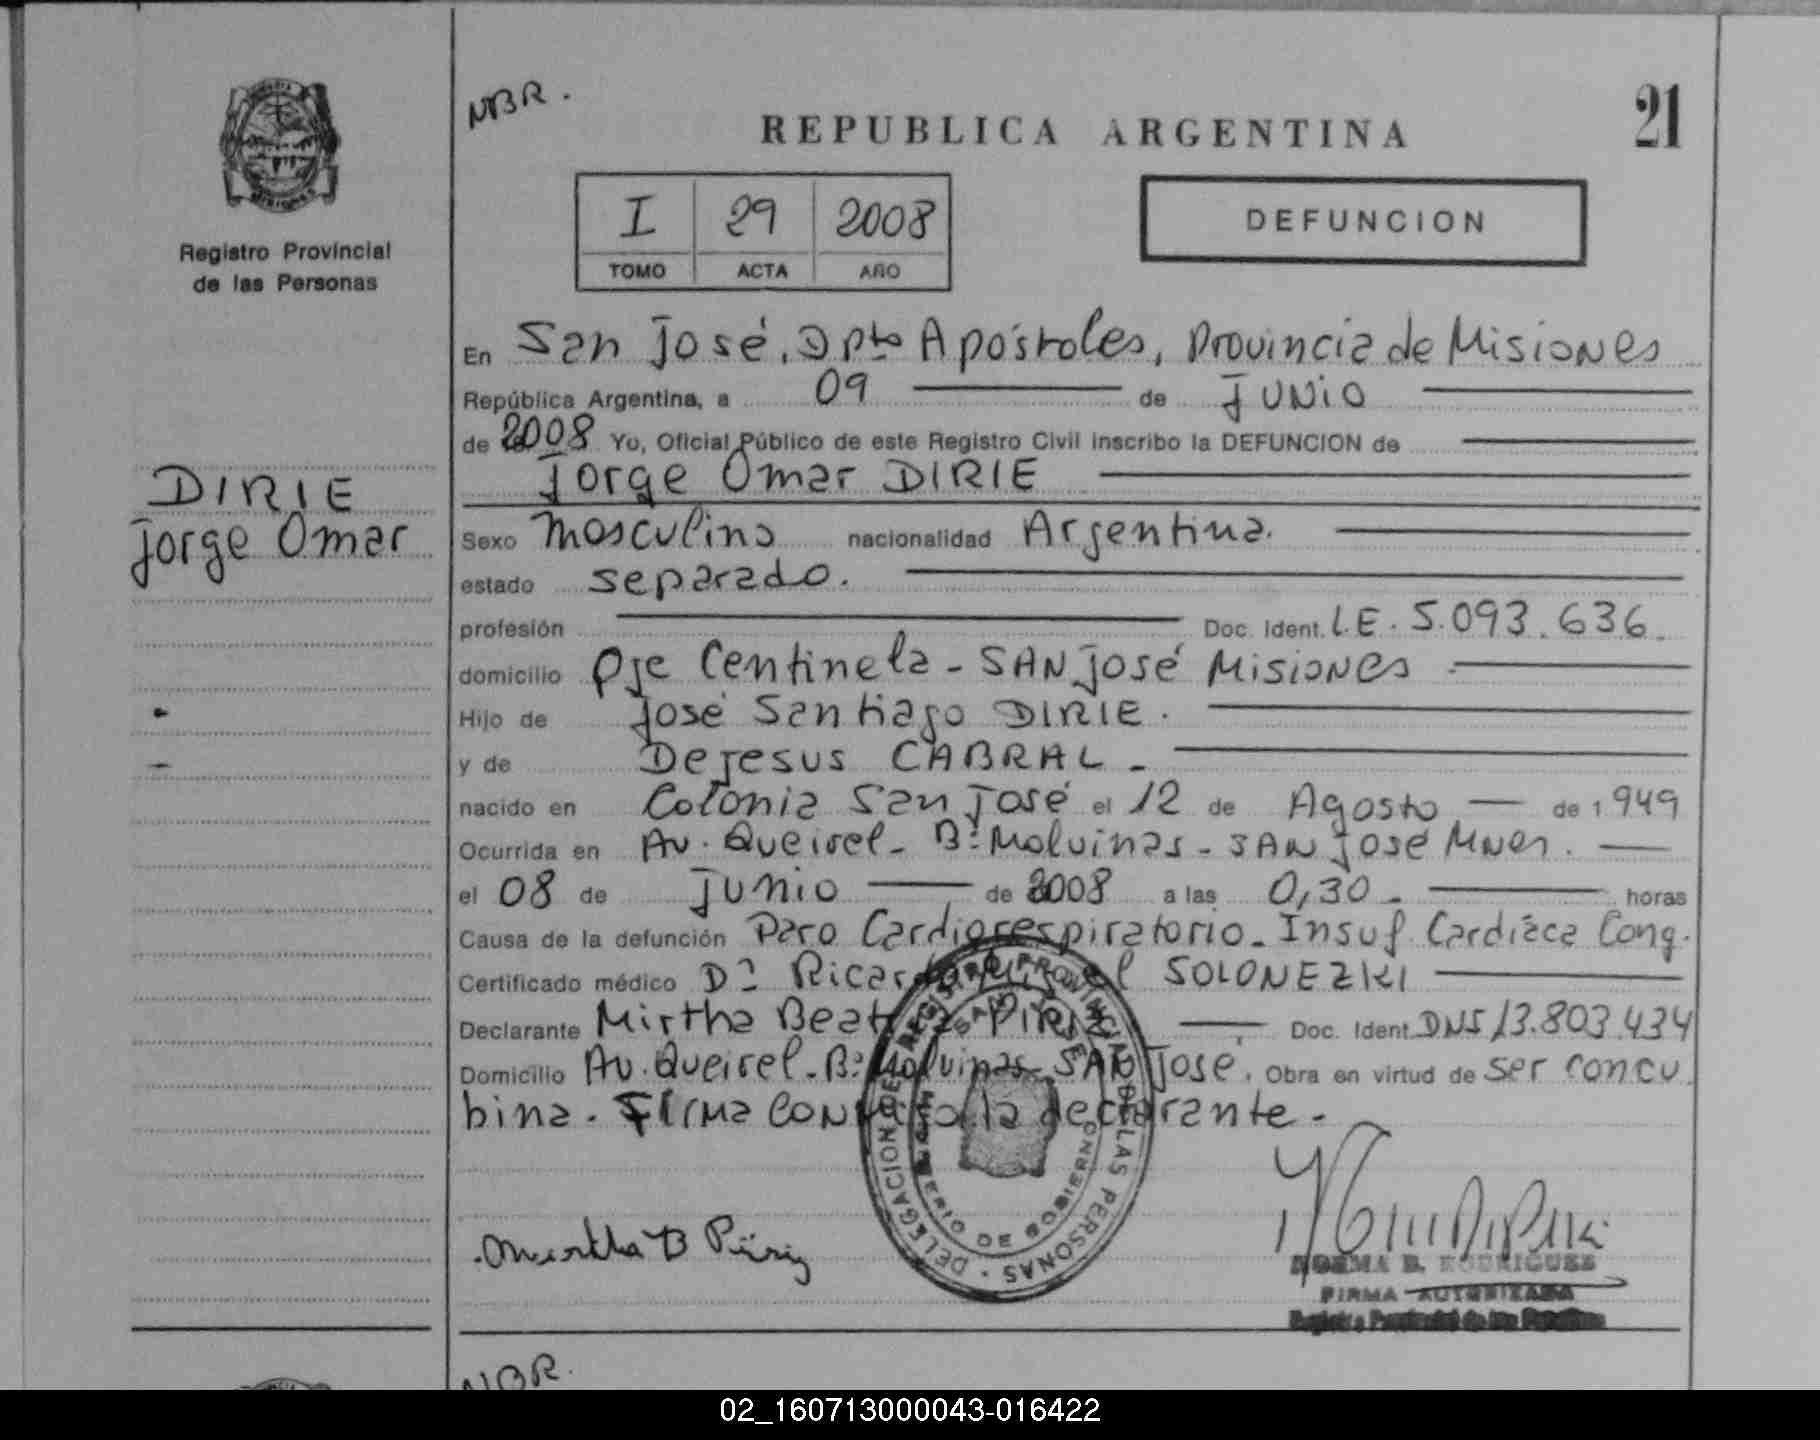 NBR.
REPUBLICA ARGENTINA
21
I 29 2008
TOMO ACTA AÑO
DEFUNCION
Registro Provincial
de las Personas
DIRIE
Jorge Omar
En San José, Dpto Apóstoles, Provincia de Misiones
República Argentina, a 09 de JUNIO
de 2008 Yo, Oficial Público de este Registro Civil inscribo la DEFUNCION de
Jorge Omar DIRIE
Sexo Masculino nacionalidad Argentina.
estado separado.
profesión Doc. Ident. L.E. 5.093.636.
domicilio Pje Centinela - SAN José Misiones.
Hijo de José Santiago DIRIE.
y de Dejesus CABRAL -
nacido en Colonia San José el 12 de Agosto de 1949
Ocurrida en Av. Queirel - B: Malvinas - SAN José Mnes.
el 08 de Junio de 2008 a las 0,30 - horas
Causa de la defunción Paro Cardiorespiratorio - Insuf. Cardiáca Cong.
Certificado médico D: Ricardo SOLONEZKI
Declarante Mirtha Beatriz PIRIZ Doc. Ident. DNI 13.803.434
Domicilio Av. Queirel - B: Malvinas - SAN José. Obra en virtud de ser concu
bina. Firma la declarante -
REGISTRO PROVINCIAL DE LAS PERSONAS
SAN JOSE
DELEGACION DE
MINISTERIO DE GOBIERNO
Mirtha B Piriz
NORMA B. RODRIGUES
FIRMA AUTORIZADA
Registro Provincial de las Personas
NBR.
02_160713000043-016422